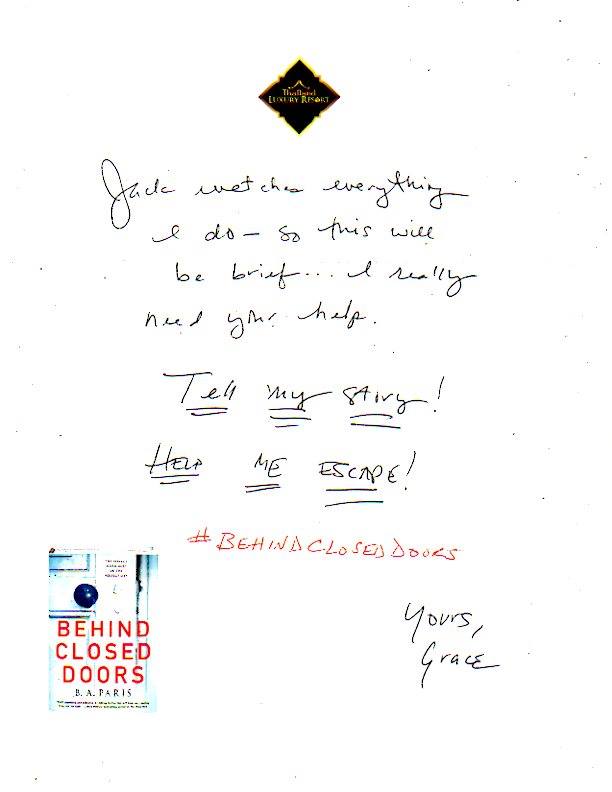 Thailand
LUXURY RESORT
Jack watches everything
I do – so this will
be brief... I really
need your help.
Tell my story!
HELP ME ESCAPE!
#BEHINDCLOSEDDOORS
BEHIND
CLOSED
DOORS
B. A. PARIS
Yours,
Grace